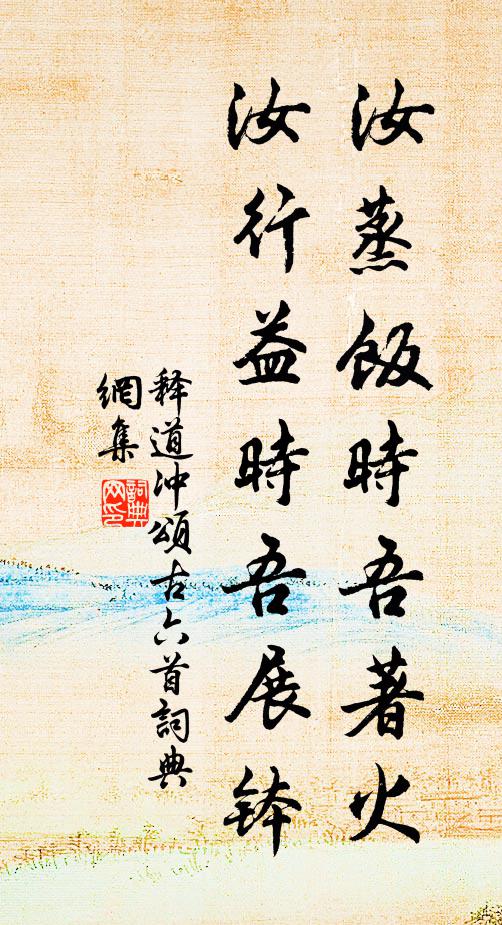 汝蒸飯時吾著火
汝行益時吾展鉢
释道冲頌古六首詞典
網集
詞典
网印